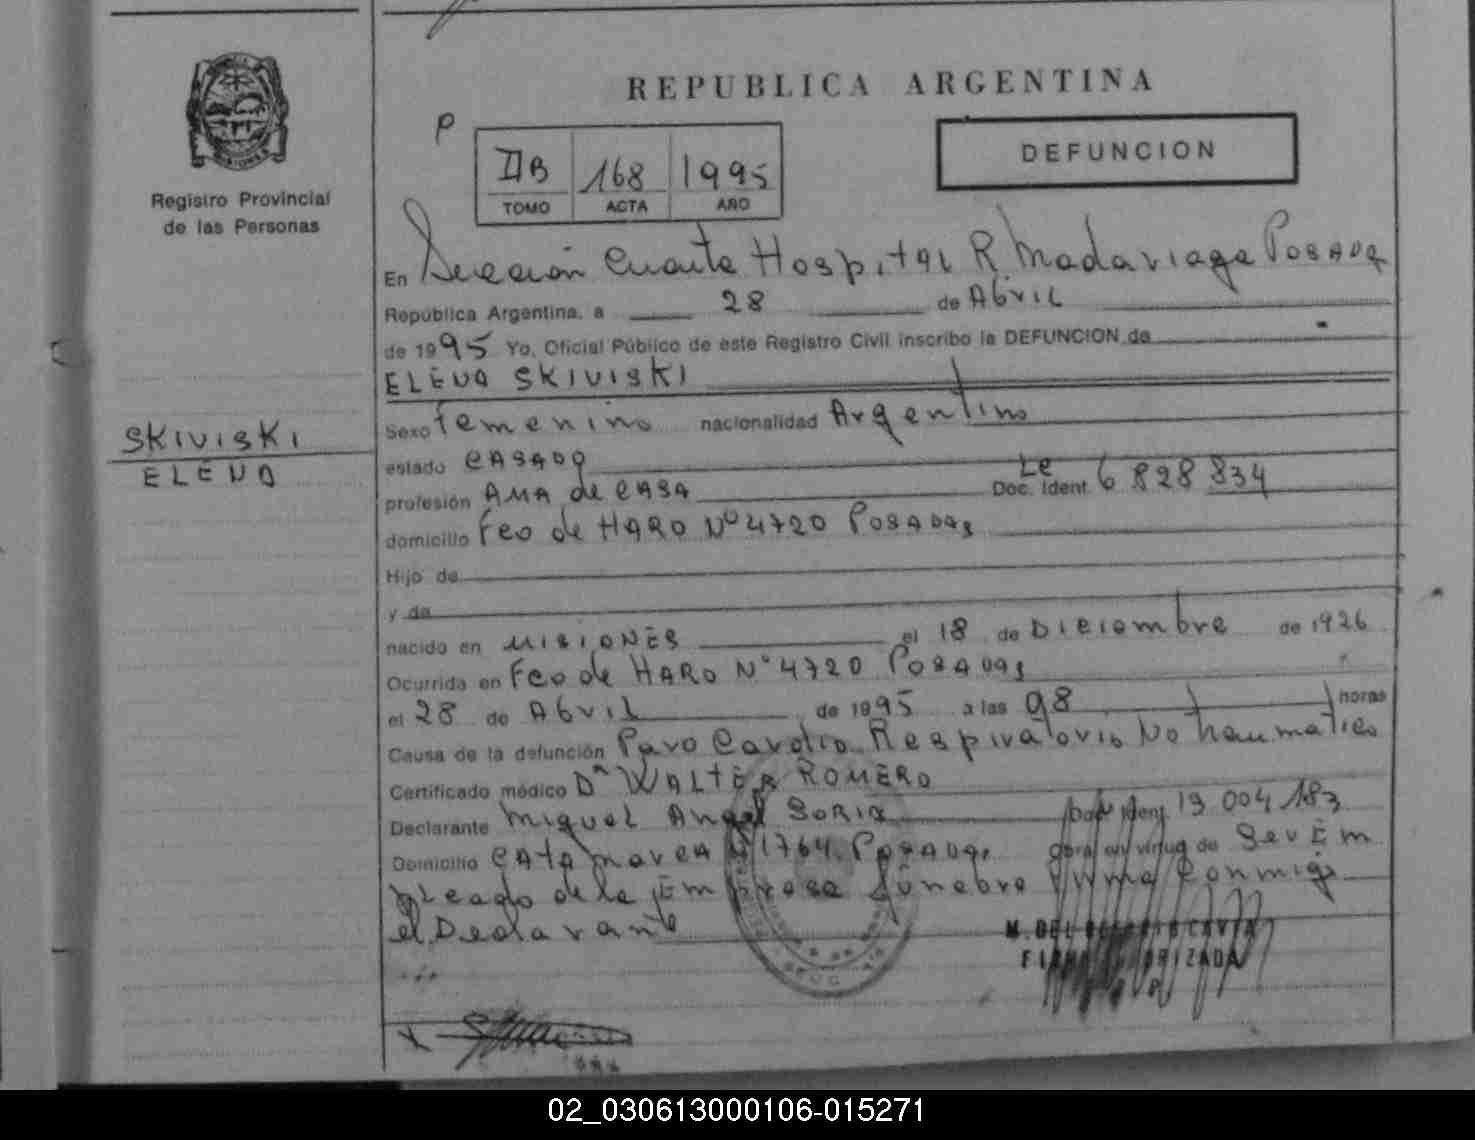 REPUBLICA ARGENTINA
P
DEFUNCION
IIB 168 1995
TOMO ACTA AÑO
Registro Provincial
de las Personas
En Sección Cuarta Hospital R. Madariaga Posadas
República Argentina, a 28 de Abril
de 1995 Yo, Oficial Público de este Registro Civil inscribo la DEFUNCION de
ELENA SKIVISKI
SKIVISKI
ELENA
Sexo femenino nacionalidad Argentina
estado CASADA
profesión AMA de CASA Doc. Ident. Lc 6828834
domicilio Fco de HARO Nº 4720 POSADAS
Hijo de
y de
nacido en MISIONES el 18 de Diciembre de 1926
Ocurrida en Fco de HARO Nº 4720 POSADAS
el 28 de Abril de 1995 a las 08 horas
Causa de la defunción Paro Cardio Respiratorio No traumatico
Certificado médico Dr WALTER ROMERO
Declarante Miguel Angel SORIA Doc. Ident. 13 004 183
Domicilio CAtAmarca 1764 Posadas obra en virtud de Ser Em
pleado de la Empresa Fúnebre Firma Conmigo
el Declarante
M. DEL CAVIA
FIRMA AUTORIZADA
02_030613000106-015271